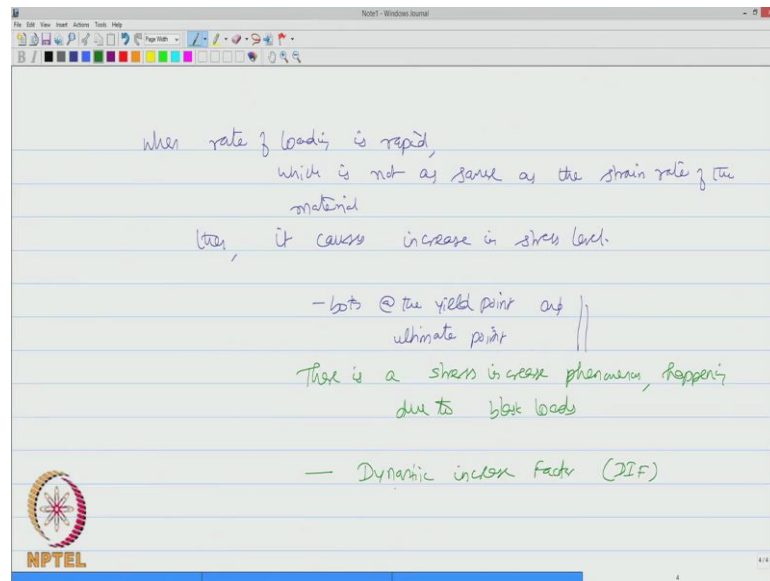 Note1 - Windows Journal
File Edit View Insert Actions Tools Help
Page Width
B I
when rate of loading is rapid,
which is not as same as the strain rate of the
material
then, it causes increase in stress level.
- both @ the yield point and
ultimate point
There is a stress increase phenomenon, happening
due to blast loads
— Dynamic increase Factor (DIF)
NPTEL
4/4
4